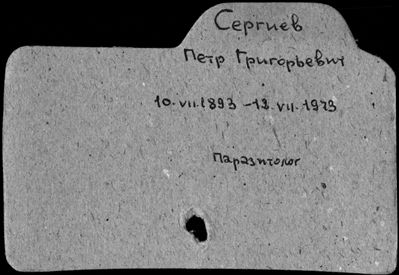 Сергиев
Петр Григорьевич
10.VII.1893 - 12.VII.1973
Паразитолог